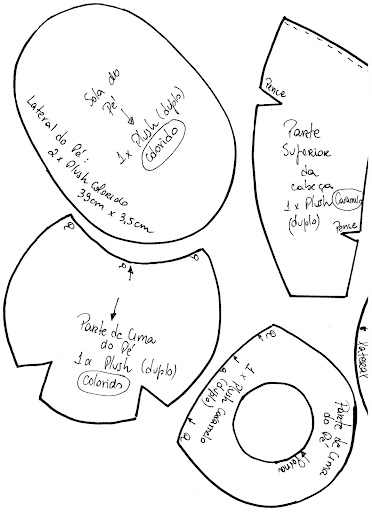 Sola do
Pé
1x Plush (duplo)
Colorido
Lateral do Pé:
2x Plush Colorido
39cm x 3,5cm
Pence
Parte
Superior
da
cabeça
1x Plush Caramelo
(duplo)
Pence
a
a
a
Parte de Cima
do Pé
1x Plush (duplo)
Colorido
a
a
1x Plush Caramelo
(duplo)
Parte de Cima
do Pé
Perna
Lateral